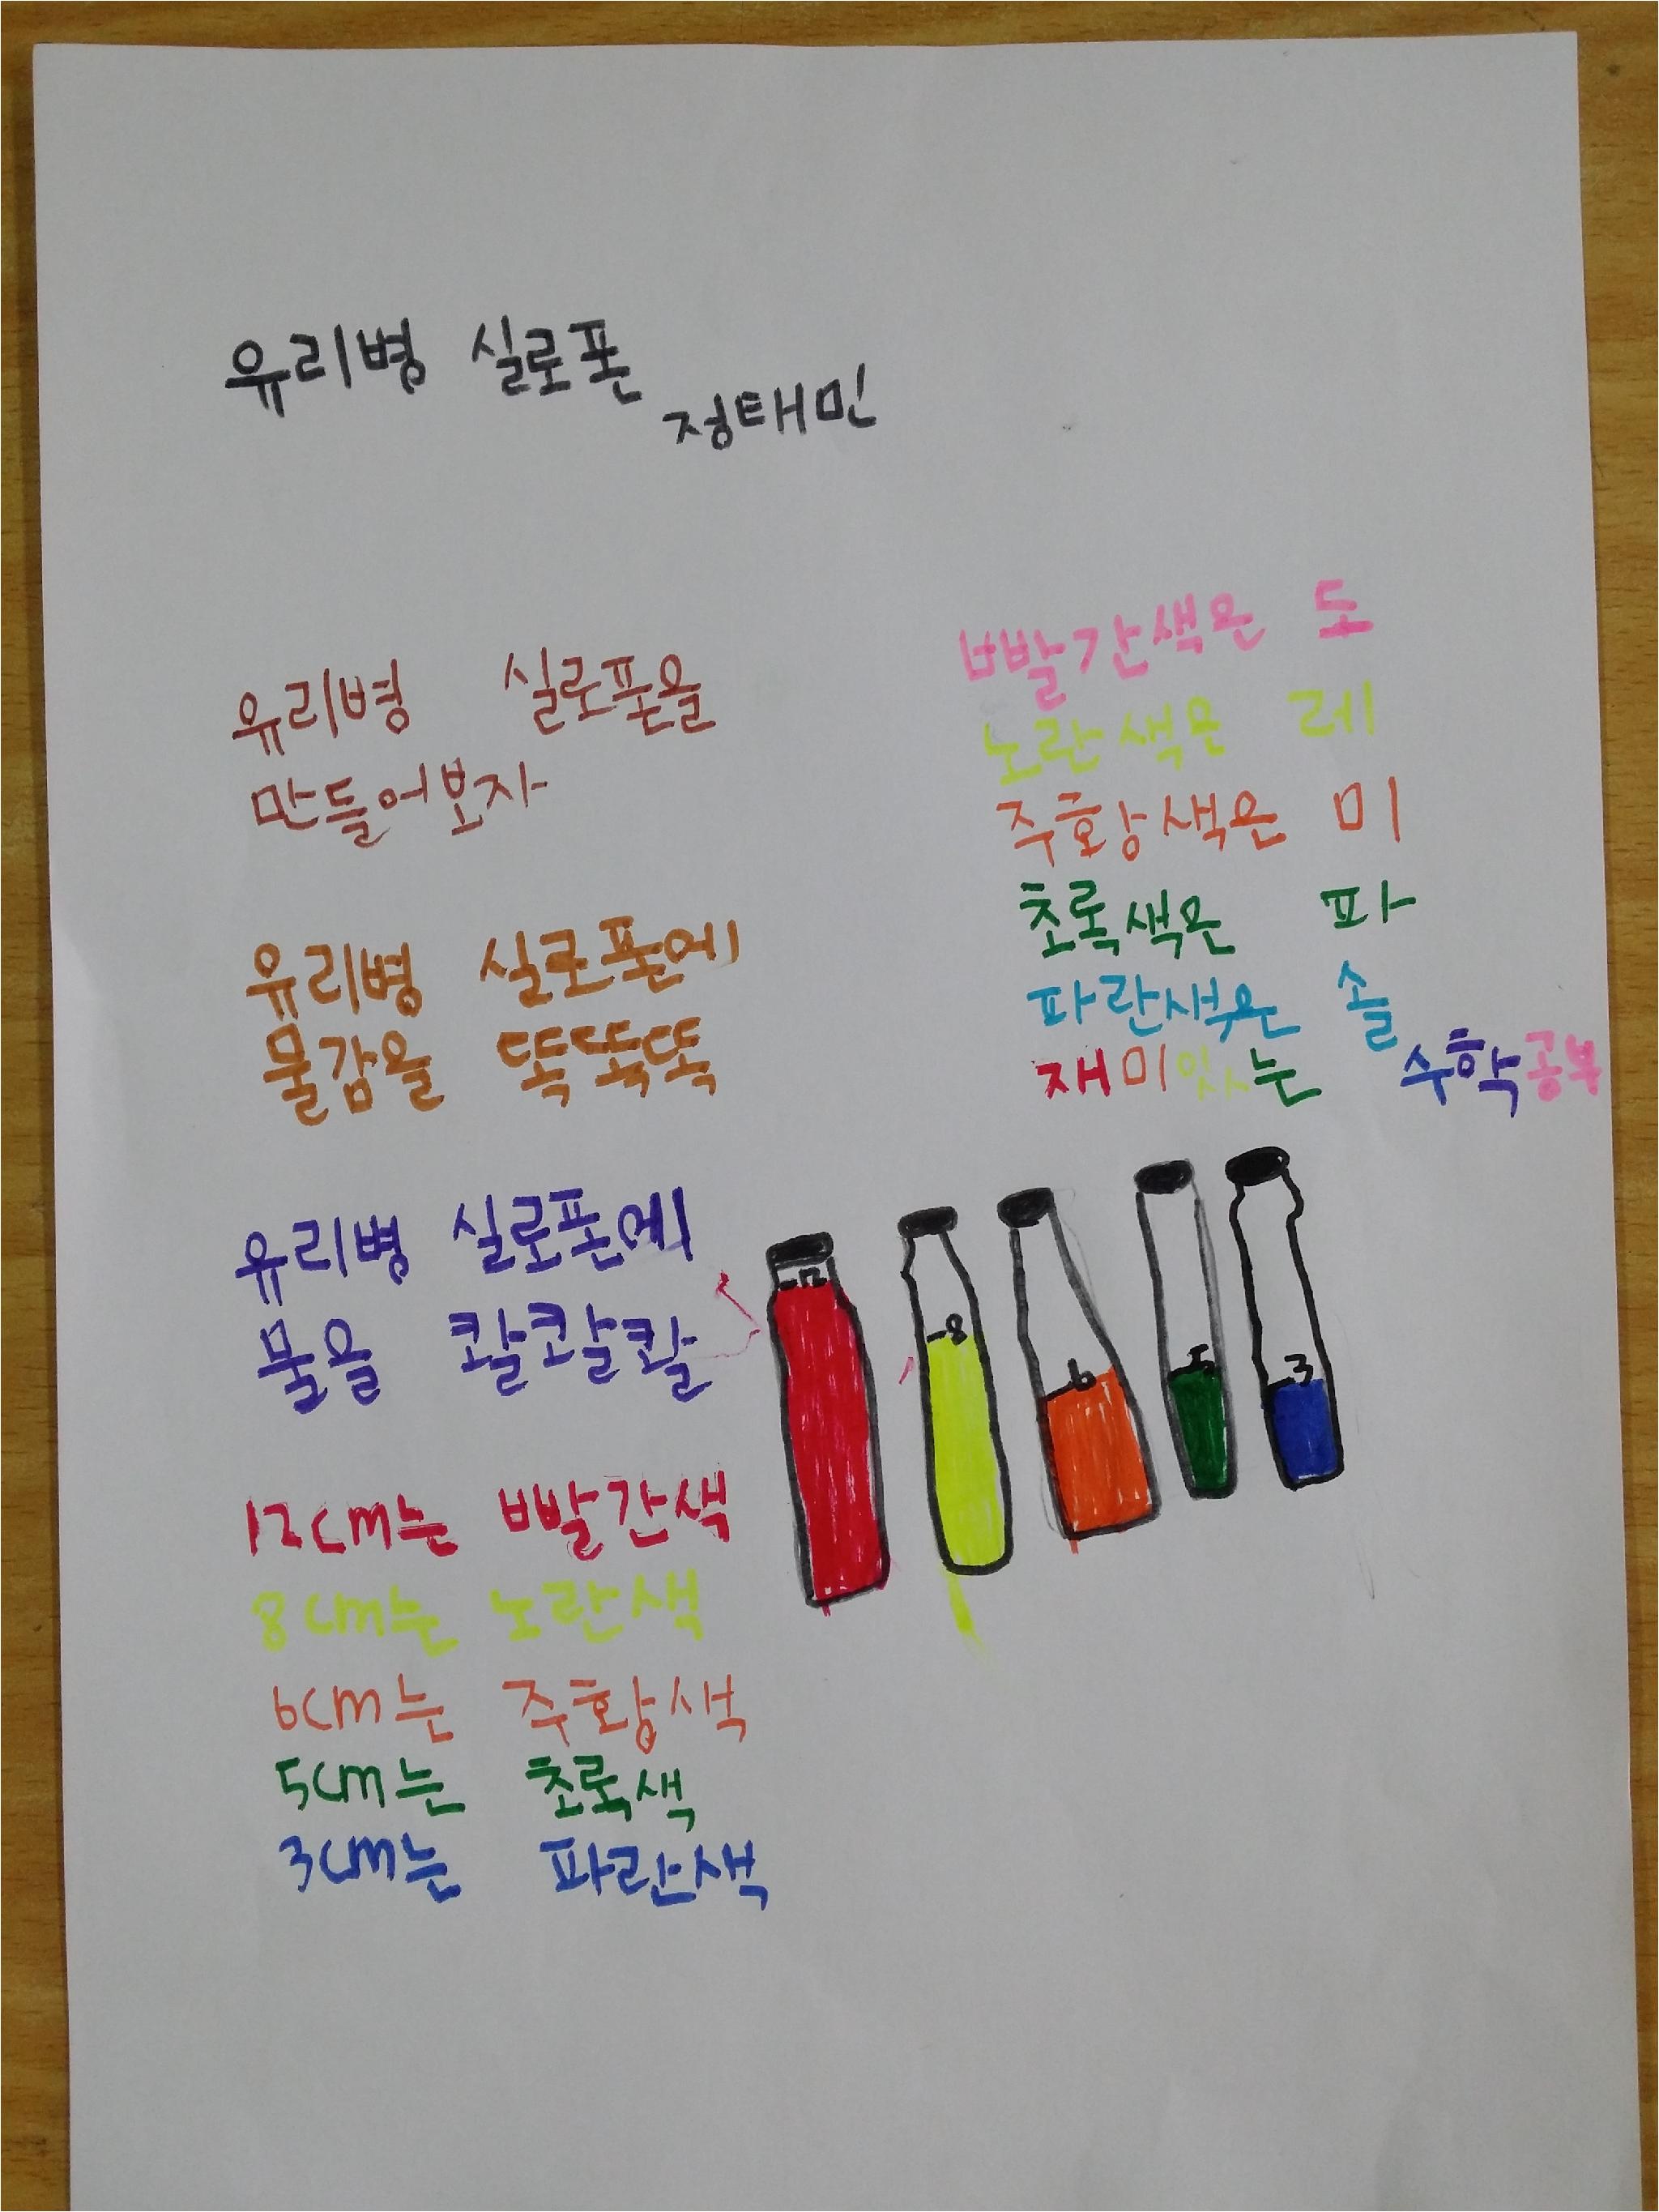 유리병 실로폰
정태민
유리병 실로폰을
만들어보자
유리병 실로폰에
물감을 똑똑똑
유리병 실로폰에
물을 콸콸콸
12cm는 빨간색
8cm는 노란색
6cm는 주황색
5cm는 초록색
3cm는 파란색
빨간색은 도
노란색은 레
주황색은 미
초록색은 파
파란색은 솔
재미있는 수학공부
12
-8
6
5
3